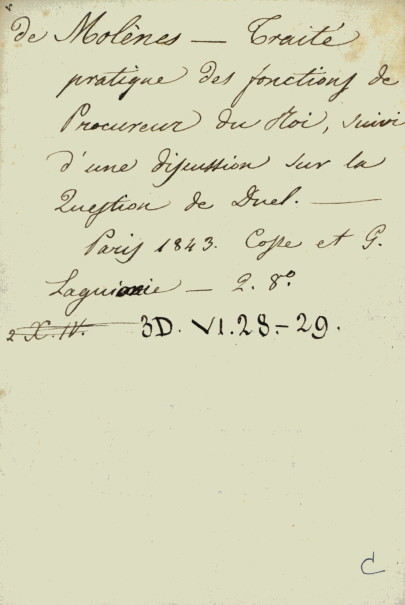 de Molènes — Traité
pratique des fonctions de
Procureur du Roi, suivi
d'une discussion sur la
Question de Duel. —
Paris 1843. Cosse et G.
Laguionie — 2. 8.º
2 X. IV. 3D. VI. 28.-29.
C